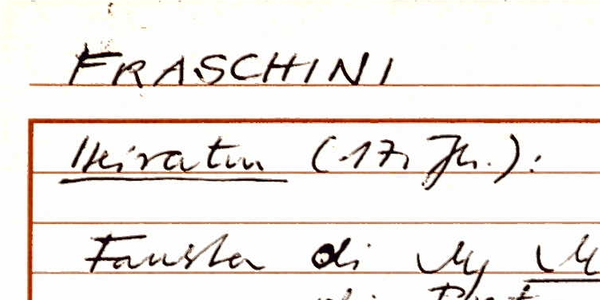 FRASCHINI
Heiraten (17. Jh.):
Fausta di
di